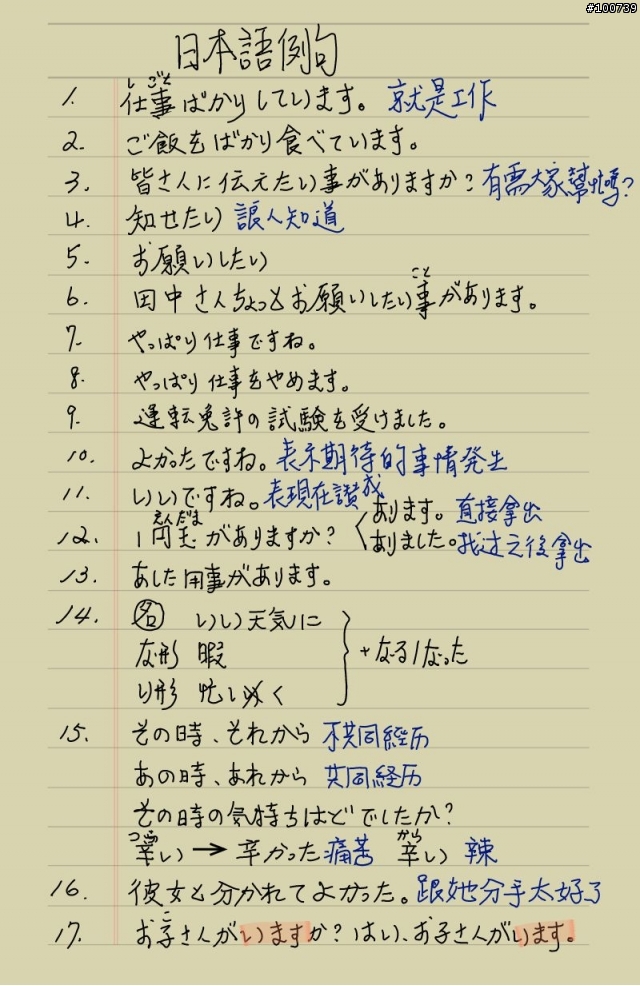 #100739
日本語例句
1. 仕事ばかりしています。 就是工作
しごと
2. ご飯をばかり食べています。
3. 皆さんに伝えたい事がありますか? 有需大家幫忙嗎?
4. 知せたい 讓人知道
5. お願いしたい
こと
6. 田中さんちょっとお願いしたい事があります。
7. やっぱり仕事ですね。
8. やっぱり仕事をやめます。
9. 運転免許の試験を受けました。
10. よかったですね。表示期待的事情発生
11. いいですね。表現在讃成
えんだま
あります。 直接拿出
12. 1円玉がありますか?
ありました。找过之後拿出
13. あした用事があります。
14. 名 いい天気に
な形 暇
+なる/なった
い形 忙しいく
15. その時、それから 不共同経历
あの時、あれから 共同経历
その時の気持ちはどでしたか?
つら から
辛い → 辛かった 痛苦 辛い 辣
16. 彼女と分かれてよかった。跟她分手太好了
こ
17. お子さんがいますか? はい、お子さんがいます。